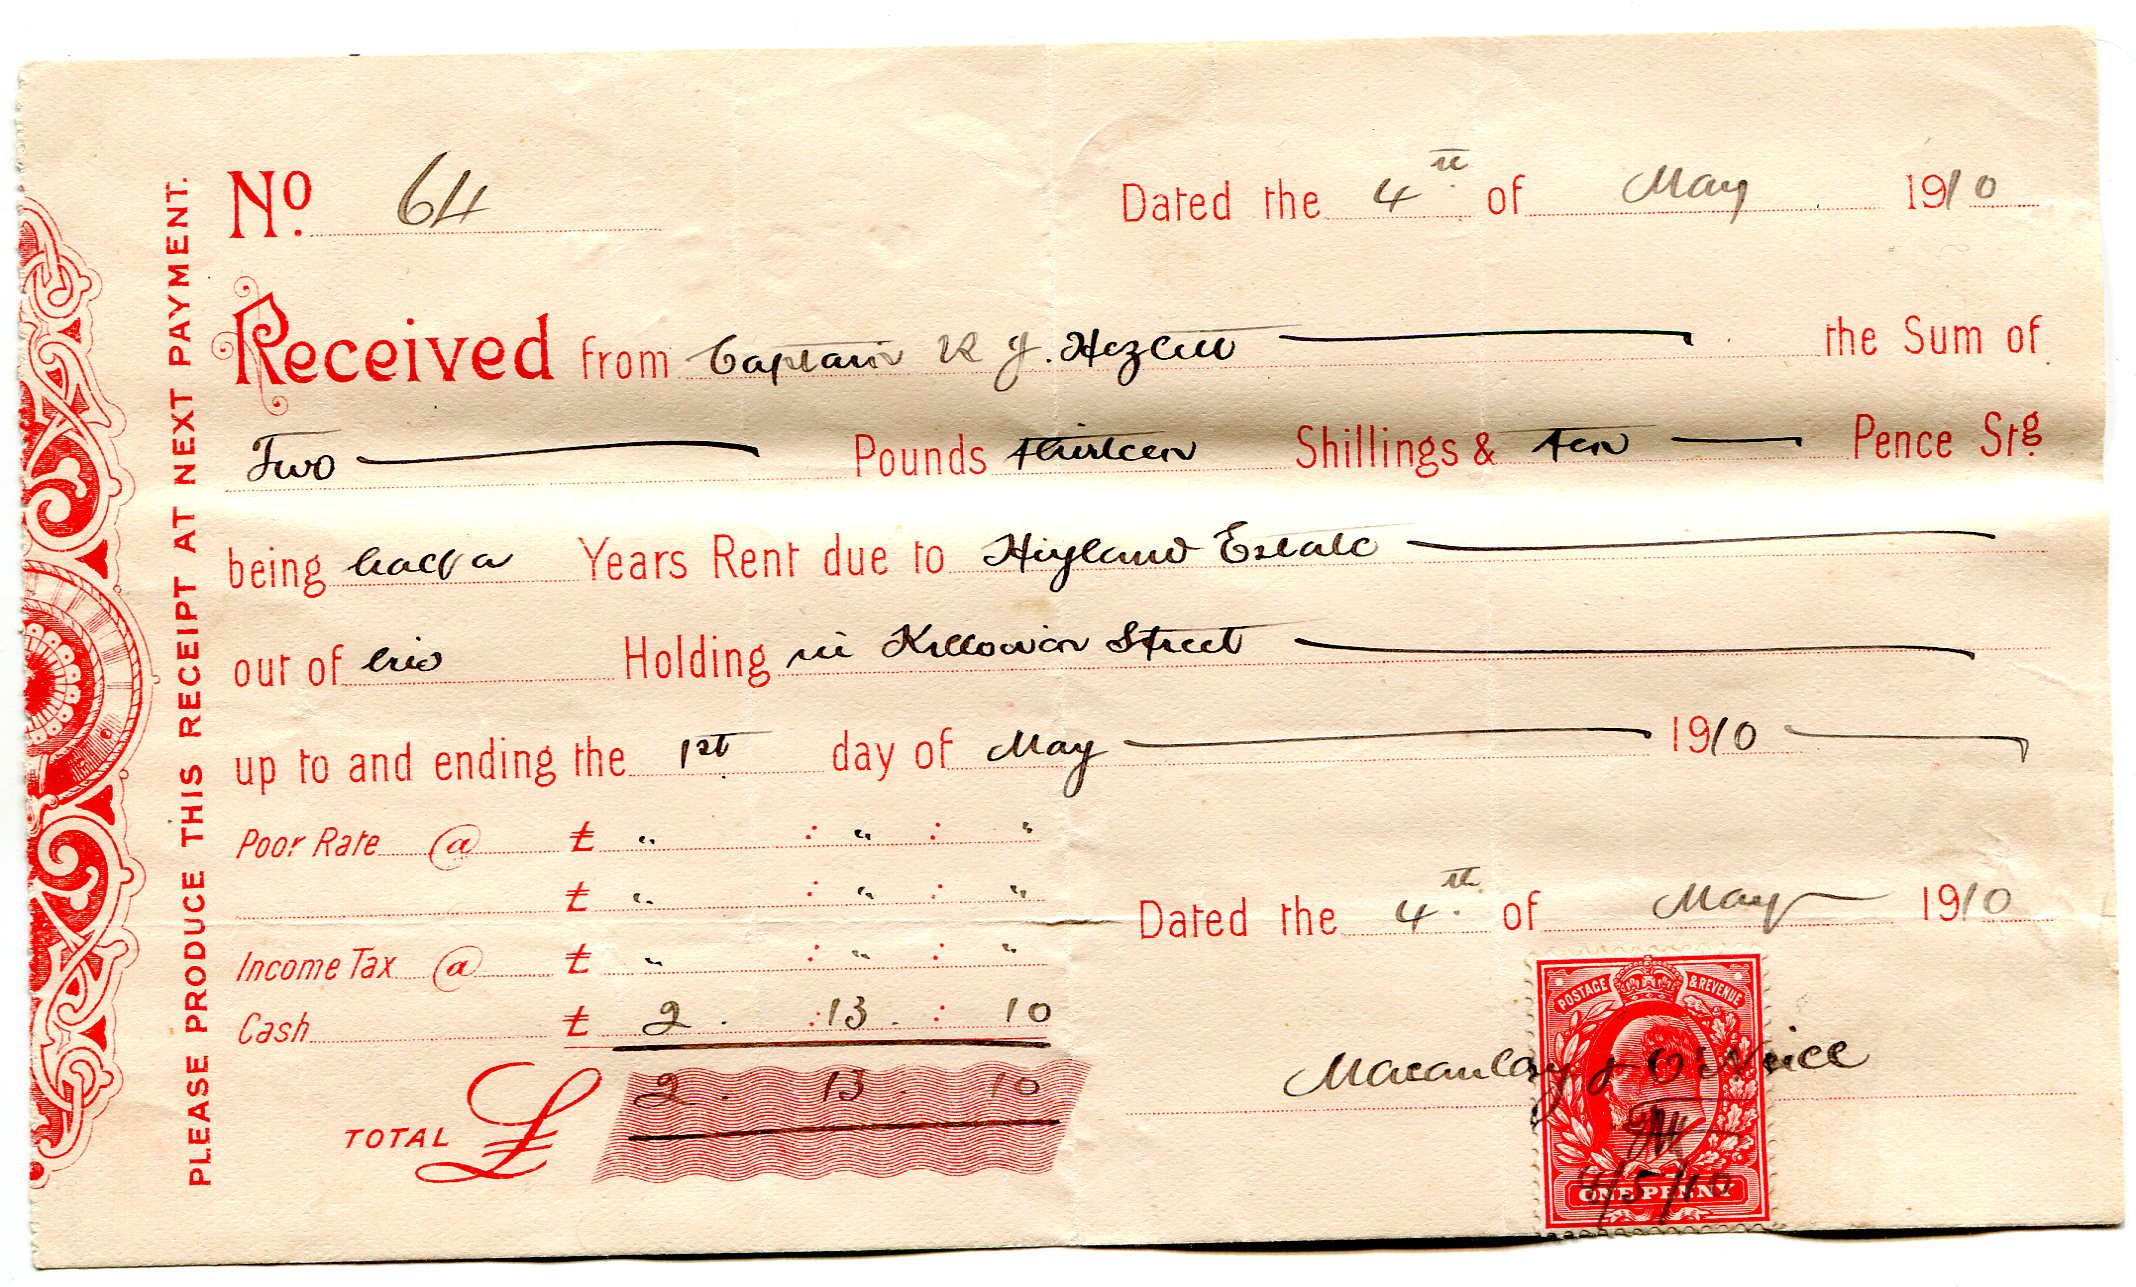 PLEASE PRODUCE THIS RECEIPT AT NEXT PAYMENT.
No. 64 Dated the 4th of May 1910
Received from Captain R J. Hezlett the Sum of
Two Pounds thirteen Shillings & ten Pence Stg.
being half a Years Rent due to Hyland Estate
out of his Holding in Killowen Street
up to and ending the 1st day of May 1910
Poor Rate @ £ " : " : "
£ " : " : "
Dated the 4th. of May 1910
Income Tax @ £ " : " : "
Cash £ 2 . : 13 . : 10
TOTAL £ 2 . 13 . 10
POSTAGE & REVENUE
Macaulay & O'Neill
4/5/10
ONE PENNY